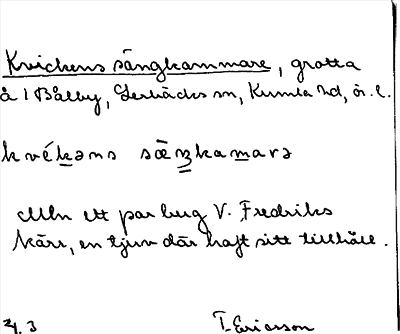 Kvickens sängkammare, grotta
å 1 Bålby, Lerbäcks sn, Kumla hd, ör. l.
kvékəns sæŋkamarə
ett par hug V. Fredriks
kärr, en tjuv där haft sitt tillhåll.
4.3 T. Ericsson